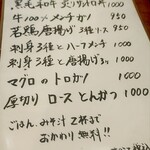 黒毛和牛 炙りトロ 1000
牛100%メンチカツ 950
若鶏 唐揚げ3種ソース 950
刺身3種とハーフメンチ 1000
刺身3種と唐揚げ3ヶ 1000
マグロのトロカツ 1000
厚切り ロースとんかつ 1000
ごはん、みそ汁2杯まで
おかわり無料!!